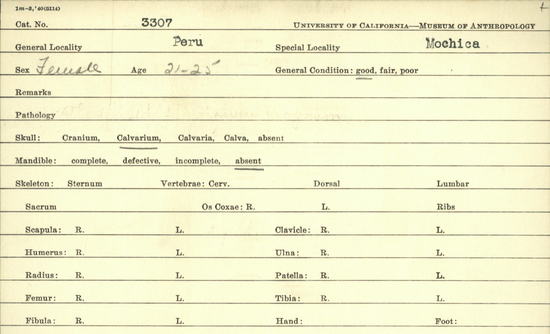 1m-8,'40(8114)
Cat. No. 3307 UNIVERSITY OF CALIFORNIA—MUSEUM OF ANTHROPOLOGY
General Locality Peru Special Locality Mochica
Sex Female Age 21-25 General Condition: good, fair, poor
Remarks
Pathology
Skull: Cranium, Calvarium, Calvaria, Calva, absent
Mandible: complete, defective, incomplete, absent
Skeleton: Sternum Vertebrae: Cerv. Dorsal Lumbar
Sacrum Os Coxae: R. L. Ribs
Scapula: R. L. Clavicle: R. L.
Humerus: R. L. Ulna: R. L.
Radius: R. L. Patella: R. L.
Femur: R. L. Tibia: R. L.
Fibula: R. L. Hand: Foot: